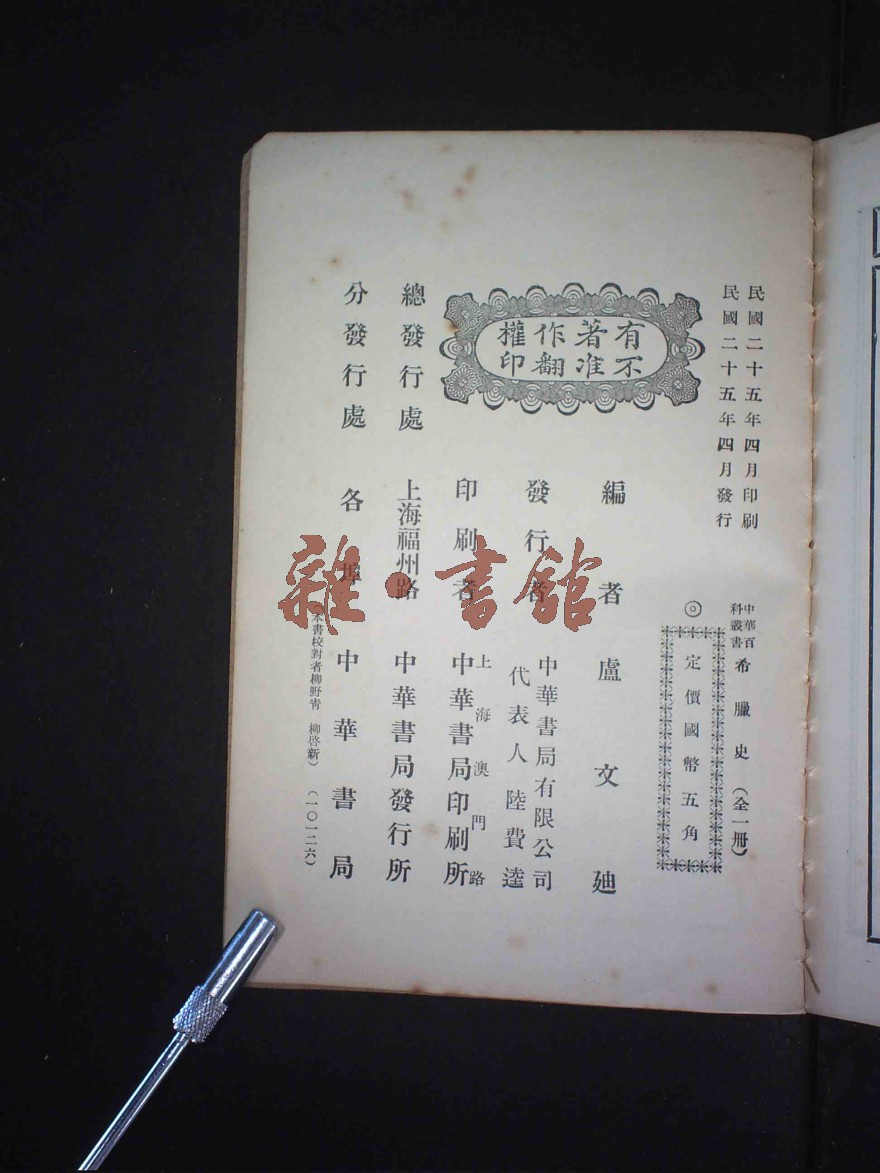 民國二十五年四月印刷
民國二十五年四月發行
中華百科叢書 希臘史（全一冊）
◎定價國幣五角
有著作權
不准翻印
編者 盧文廸
發行者 中華書局有限公司
代表人 陸費逵
印刷者 上海澳門路
中華書局印刷所
總發行處 上海福州路 中華書局發行所
分發行處 各埠中華書局
（本書校對者柳野青 柳啓新）（一〇一二六）
雜·書館